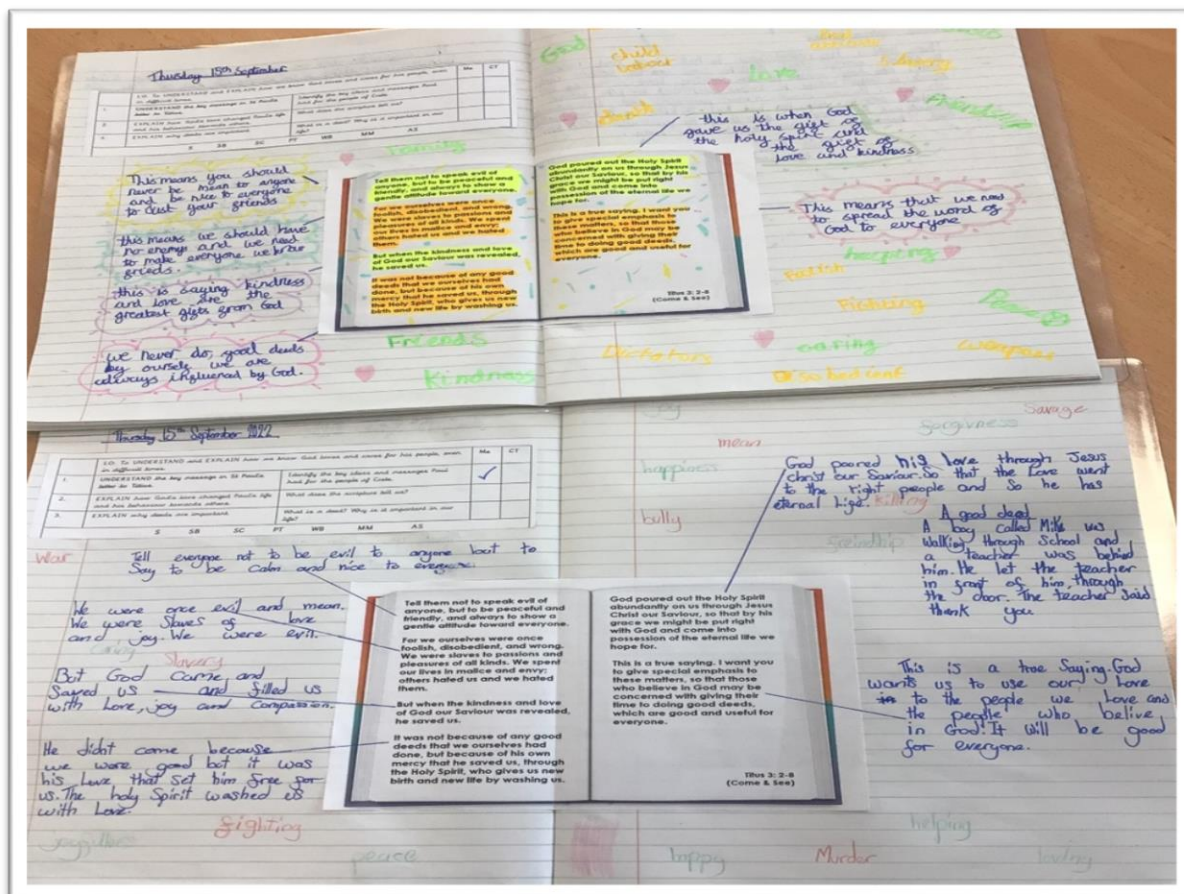 Thursday 15th September
Me
CT
L.O: To UNDERSTAND and EXPLAIN how we know God loves and cares for his people, even
in difficult times.
1.
UNDERSTAND the key message in St Paul's
letter to Titus.
Identify the key ideas and messages Paul
had for the people of Crete.
2.
EXPLAIN how God's love changed Paul's life
and his behaviour towards others.
What does the scripture tell us?
3.
EXPLAIN why deeds are important.
What is a deed? Why is it important in our
life?
S SB SC PT WB MM AS
This means you should
never be mean to anyone
and be nice to everyone
to your friends
this means we should have
no enemys and we need
to make everyone we
this is saying kindness
and love are the
greatest gifts from God
we never do good deeds
by ourselfs we are
always influenced by God.
Family
Friends
Kindness
Tell them not to speak evil of
anyone, but to be peaceful and
friendly, and always to show a
gentle attitude toward everyone.
For we ourselves were once
foolish, disobedient, and wrong.
We were slaves to passions and
pleasures of all kinds. We spent
our lives in malice and envy;
others hated us and we hated
them.
But when the kindness and love
of God our Saviour was revealed,
he saved us.
It was not because of any good
deeds that we ourselves had
done, but because of his own
mercy that he saved us, through
the Holy Spirit, who gives us new
birth and new life by washing us.
God poured out the Holy Spirit
abundantly on us through Jesus
Christ our Saviour, so that by his
grace we might be put right
with God and come into
possession of the eternal life we
hope for.
This is a true saying. I want you
to give special emphasis to
these matters, so that those
who believe in God may be
concerned with giving their
time to doing good deeds,
which are good and useful for
everyone.
Titus 3: 2-8
(Come & See)
Good
child
labour
Love
Slavery
Friendship
this is when God
gave us the gift of
the holy spirit and
the gift of
love and kindness
This means that we need
to spread the word of
God to everyone
helping
Foolish
Fighting
Peace
Dictators
caring
weapons
Thursday 15th September 2022
Me
CT
L.O: To UNDERSTAND and EXPLAIN how we know God loves and cares for his people, even
in difficult times.
1.
UNDERSTAND the key message in St Paul's
letter to Titus.
Identify the key ideas and messages Paul
had for the people of Crete.
2.
EXPLAIN how God's love changed Paul's life
and his behaviour towards others.
What does the scripture tell us?
3.
EXPLAIN why deeds are important.
What is a deed? Why is it important in our
life?
S SB SC PT WB MM AS
War
Tell everyone not to be evil to anyone but to
Say to be calm and nice to everyone.
We were once evil and mean.
We were slaves of love
and joy. We were evil.
Caring
Slavery
But God came and
Saved us and filled us
with Love, joy and compassion.
He didnt come because
we were good but it was
his Love that set him free for
us. The holy Spirit washed us
with Love.
fighting
peace
Tell them not to speak evil of
anyone, but to be peaceful and
friendly, and always to show a
gentle attitude toward everyone.
For we ourselves were once
foolish, disobedient, and wrong.
We were slaves to passions and
pleasures of all kinds. We spent
our lives in malice and envy;
others hated us and we hated
them.
But when the kindness and love
of God our Saviour was revealed,
he saved us.
It was not because of any good
deeds that we ourselves had
done, but because of his own
mercy that he saved us, through
the Holy Spirit, who gives us new
birth and new life by washing us.
God poured out the Holy Spirit
abundantly on us through Jesus
Christ our Saviour, so that by his
grace we might be put right
with God and come into
possession of the eternal life we
hope for.
This is a true saying. I want you
to give special emphasis to
these matters, so that those
who believe in God may be
concerned with giving their
time to doing good deeds,
which are good and useful for
everyone.
Titus 3: 2-8
(Come & See)
joy
Savage
forgivness
mean
happiness
bully
God poored his love through Jesus
christ our Saviour. So that the Love went
to the right people and So he has
eternal Life.
Killing
A good deed
A boy called Mike was
Walking through School and
a teacher was behind
him. He let the teacher
in front of him through
the door. The teacher Said
thank you
This is a true Saying. God
wants us to use our Love
to the people we Love and
the people who belive
in God. It will be good
for everyone.
helping
happy
Murder
loving